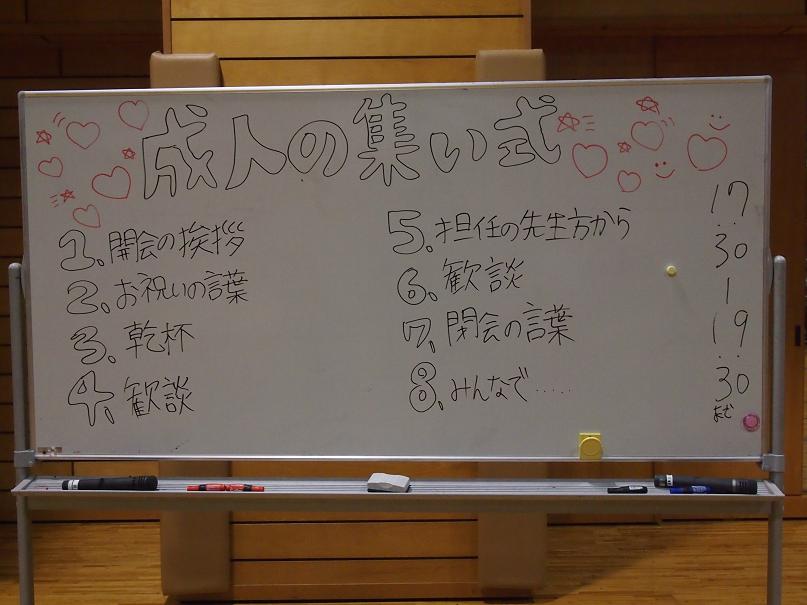 成人の集い式
1. 開会の挨拶
2. お祝いの言葉
3. 乾杯
4. 歓談
5. 担任の先生方から
6. 歓談
7. 閉会の言葉
8. みんなで.....
17:30
|
19:30
まで